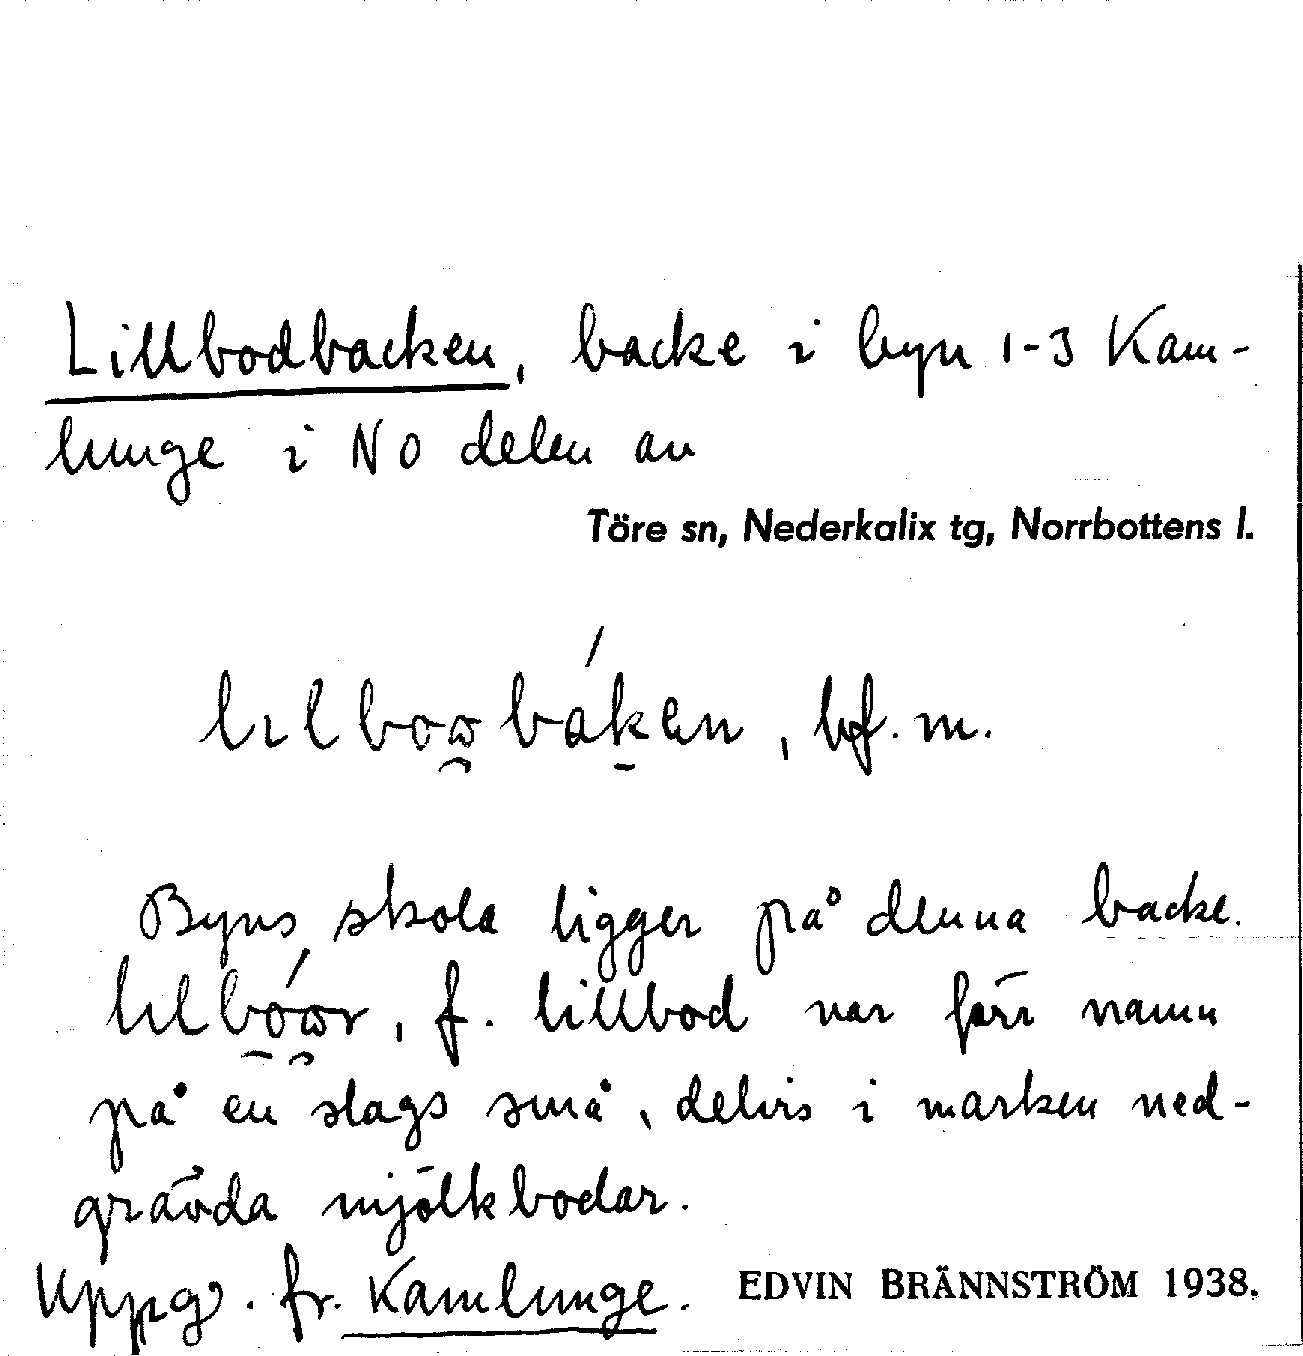 Lillbodbacken, backe i byn 1-3 Kam-
lunge i NO delen av
Töre sn, Nederkalix tg, Norrbottens l.
lilbowbákan, bf. m.
Byns skola ligger på denna backe.
lilbówr, f. lillbod var förr namn
på en slags små, delvis i marken ned-
grävda mjölkbodar.
Uppg. fr. Kamlunge. EDVIN BRÄNNSTRÖM 1938.